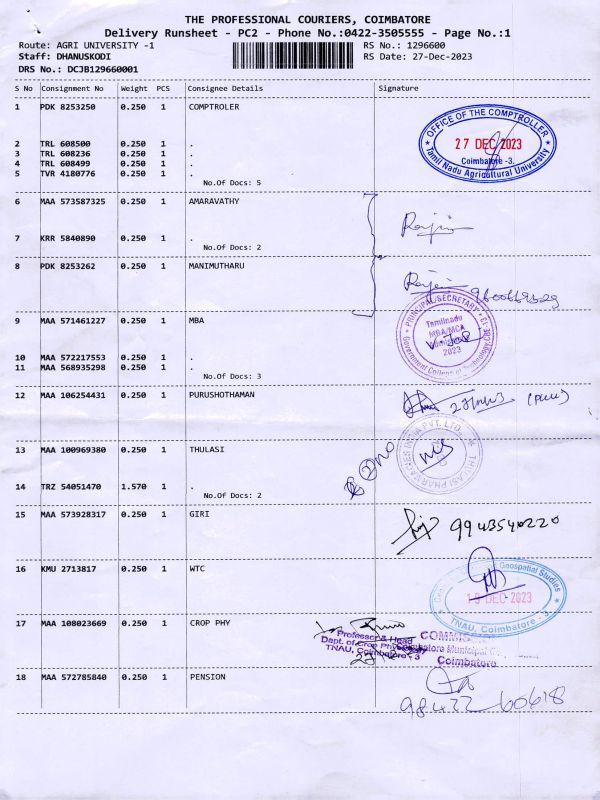 THE PROFESSIONAL COURIERS, COIMBATORE
Delivery Runsheet - PC2 - Phone No.:0422-3505555 - Page No.:1
Route: AGRI UNIVERSITY -1
RS No.: 1296600
Staff: DHANUSKODI
RS Date: 27-Dec-2023
DRS No.: DCJB129660001
S No Consignment No Weight PCS Consignee Details Signature
1 PDK 8253250 0.250 1 COMPTROLER
OFFICE OF THE COMPTROLLER
27 DEC 2023
Coimbatore -3.
Tamil Nadu Agricultural University
2 TRL 608500 0.250 1 .
3 TRL 608236 0.250 1 .
4 TRL 608499 0.250 1 .
5 TVR 4180776 0.250 1 .
No.Of Docs: 5
6 MAA 573587325 0.250 1 AMARAVATHY
7 KRR 5840890 0.250 1 .
No.Of Docs: 2
8 PDK 8253262 0.250 1 MANIMUTHARU
9 MAA 571461227 0.250 1 MBA
PRINCIPAL/SECRETARY
Tamilnadu
MBA/MCA
2023
Government College of Technology, CBE
10 MAA 572217553 0.250 1 .
11 MAA 568935298 0.250 1 .
No.Of Docs: 3
12 MAA 106254431 0.250 1 PURUSHOTHAMAN
13 MAA 100969380 0.250 1 THULASI
14 TRZ 54051470 1.570 1 .
No.Of Docs: 2
15 MAA 573928317 0.250 1 GIRI
9943540220
16 KMU 2713817 0.250 1 WTC
Geospatial Studies
DEC 2023
TNAU, Coimbatore - 3.
17 MAA 108023669 0.250 1 CROP PHY
Professor & Head
Dept. of Crop Physiology
TNAU, Coimbatore - 3
Coimbatore Municipal
Coimbatore
18 MAA 572785840 0.250 1 PENSION
98422 60618